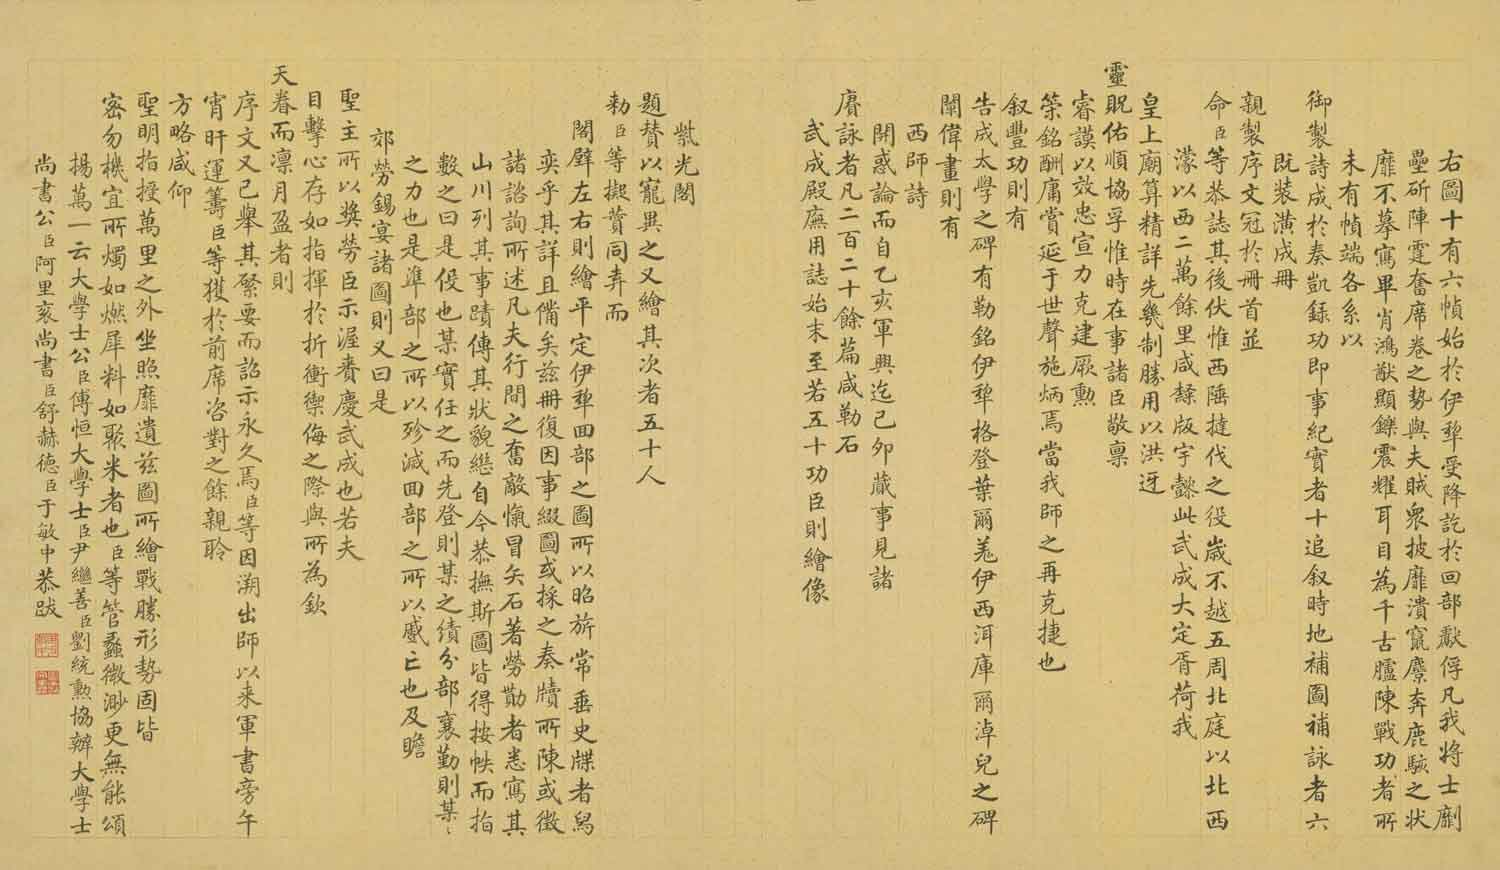 右圖十有六幀始於伊犂受降訖於回部獻俘凡我將士劘
壘斫陣霆奮席卷之勢與夫賊衆披靡潰竄麇奔鹿駭之狀
靡不摹寫畢肖鴻猷顯鑠震耀耳目為千古臚陳戰功者所
未有幀端各系以
御製詩成於奏凱錄功即事紀實者十追叙時地補圖補詠者六
既裝潢成冊
親製序文冠於冊首並
命臣等恭誌其後伏惟西陲撻伐之役歲不越五周北庭以北西
濛以西二萬餘里咸隸版宇懿此武成大定胥荷我
皇上廟算精詳先幾制勝用以洪迓
靈貺佑順協孚惟時在事諸臣敬禀
睿謨以效忠宣力克建厥勲
榮銘酬庸賞延于世聲施炳焉當我師之再克捷也
叙豐功則有
告成太學之碑有勒銘伊犂格登葉爾羗伊西洱庫爾淖兒之碑
闡偉畫則有
西師詩
開惑論而自乙亥軍興迄己卯蕆事見諸
賡詠者凡二百二十餘篇咸勒石
武成殿廡用誌始末至若五十功臣則繪像
紫光閣
題贊以寵異之又繪其次者五十人
勑臣等擬贊同弆而
閣壁左右則繪平定伊犂回部之圖所以昭旂常垂史牒者舄
奕乎其詳且備矣茲冊復因事綴圖或採之奏牘所陳或徵
諸諮詢所述凡夫行間之奮敵愾冒矢石著勞勩者悉寫其
山川列其事蹟傳其狀貌繼自今恭撫斯圖皆得按帙而指
數之曰是役也某實任之而先登則某之績分部襄勤則某〻
之力也是準部之所以殄滅回部之所以底亡也及瞻
郊勞錫宴諸圖則又曰是
聖主所以獎勞臣示渥賚慶武成也若夫
目擊心存如指揮於折衝禦侮之際與所為欽
天眷而凛月盈者則
序文又已舉其綮要而詔示永久焉臣等因溯出師以来軍書旁午
宵旰運籌臣等獲於前席咨對之餘親聆
方略咸仰
聖明指授萬里之外坐照靡遺茲圖所繪戰勝形勢固皆
密勿機宜所燭如燃犀料如聚米者也臣等管蠡微渺更無能頌
揚萬一云大學士公臣傅恒大學士臣尹繼善臣劉統勲協辦大學士
尚書公臣阿里袞尚書臣舒赫德臣于敏中恭跋